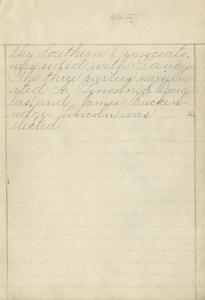 the Southern Democrats,
who sided with Yancey
The three parties nomin-
ated A. Lincoln, S. Doug-
las, and James Brecken-
ridge. Lincoln was
elected.